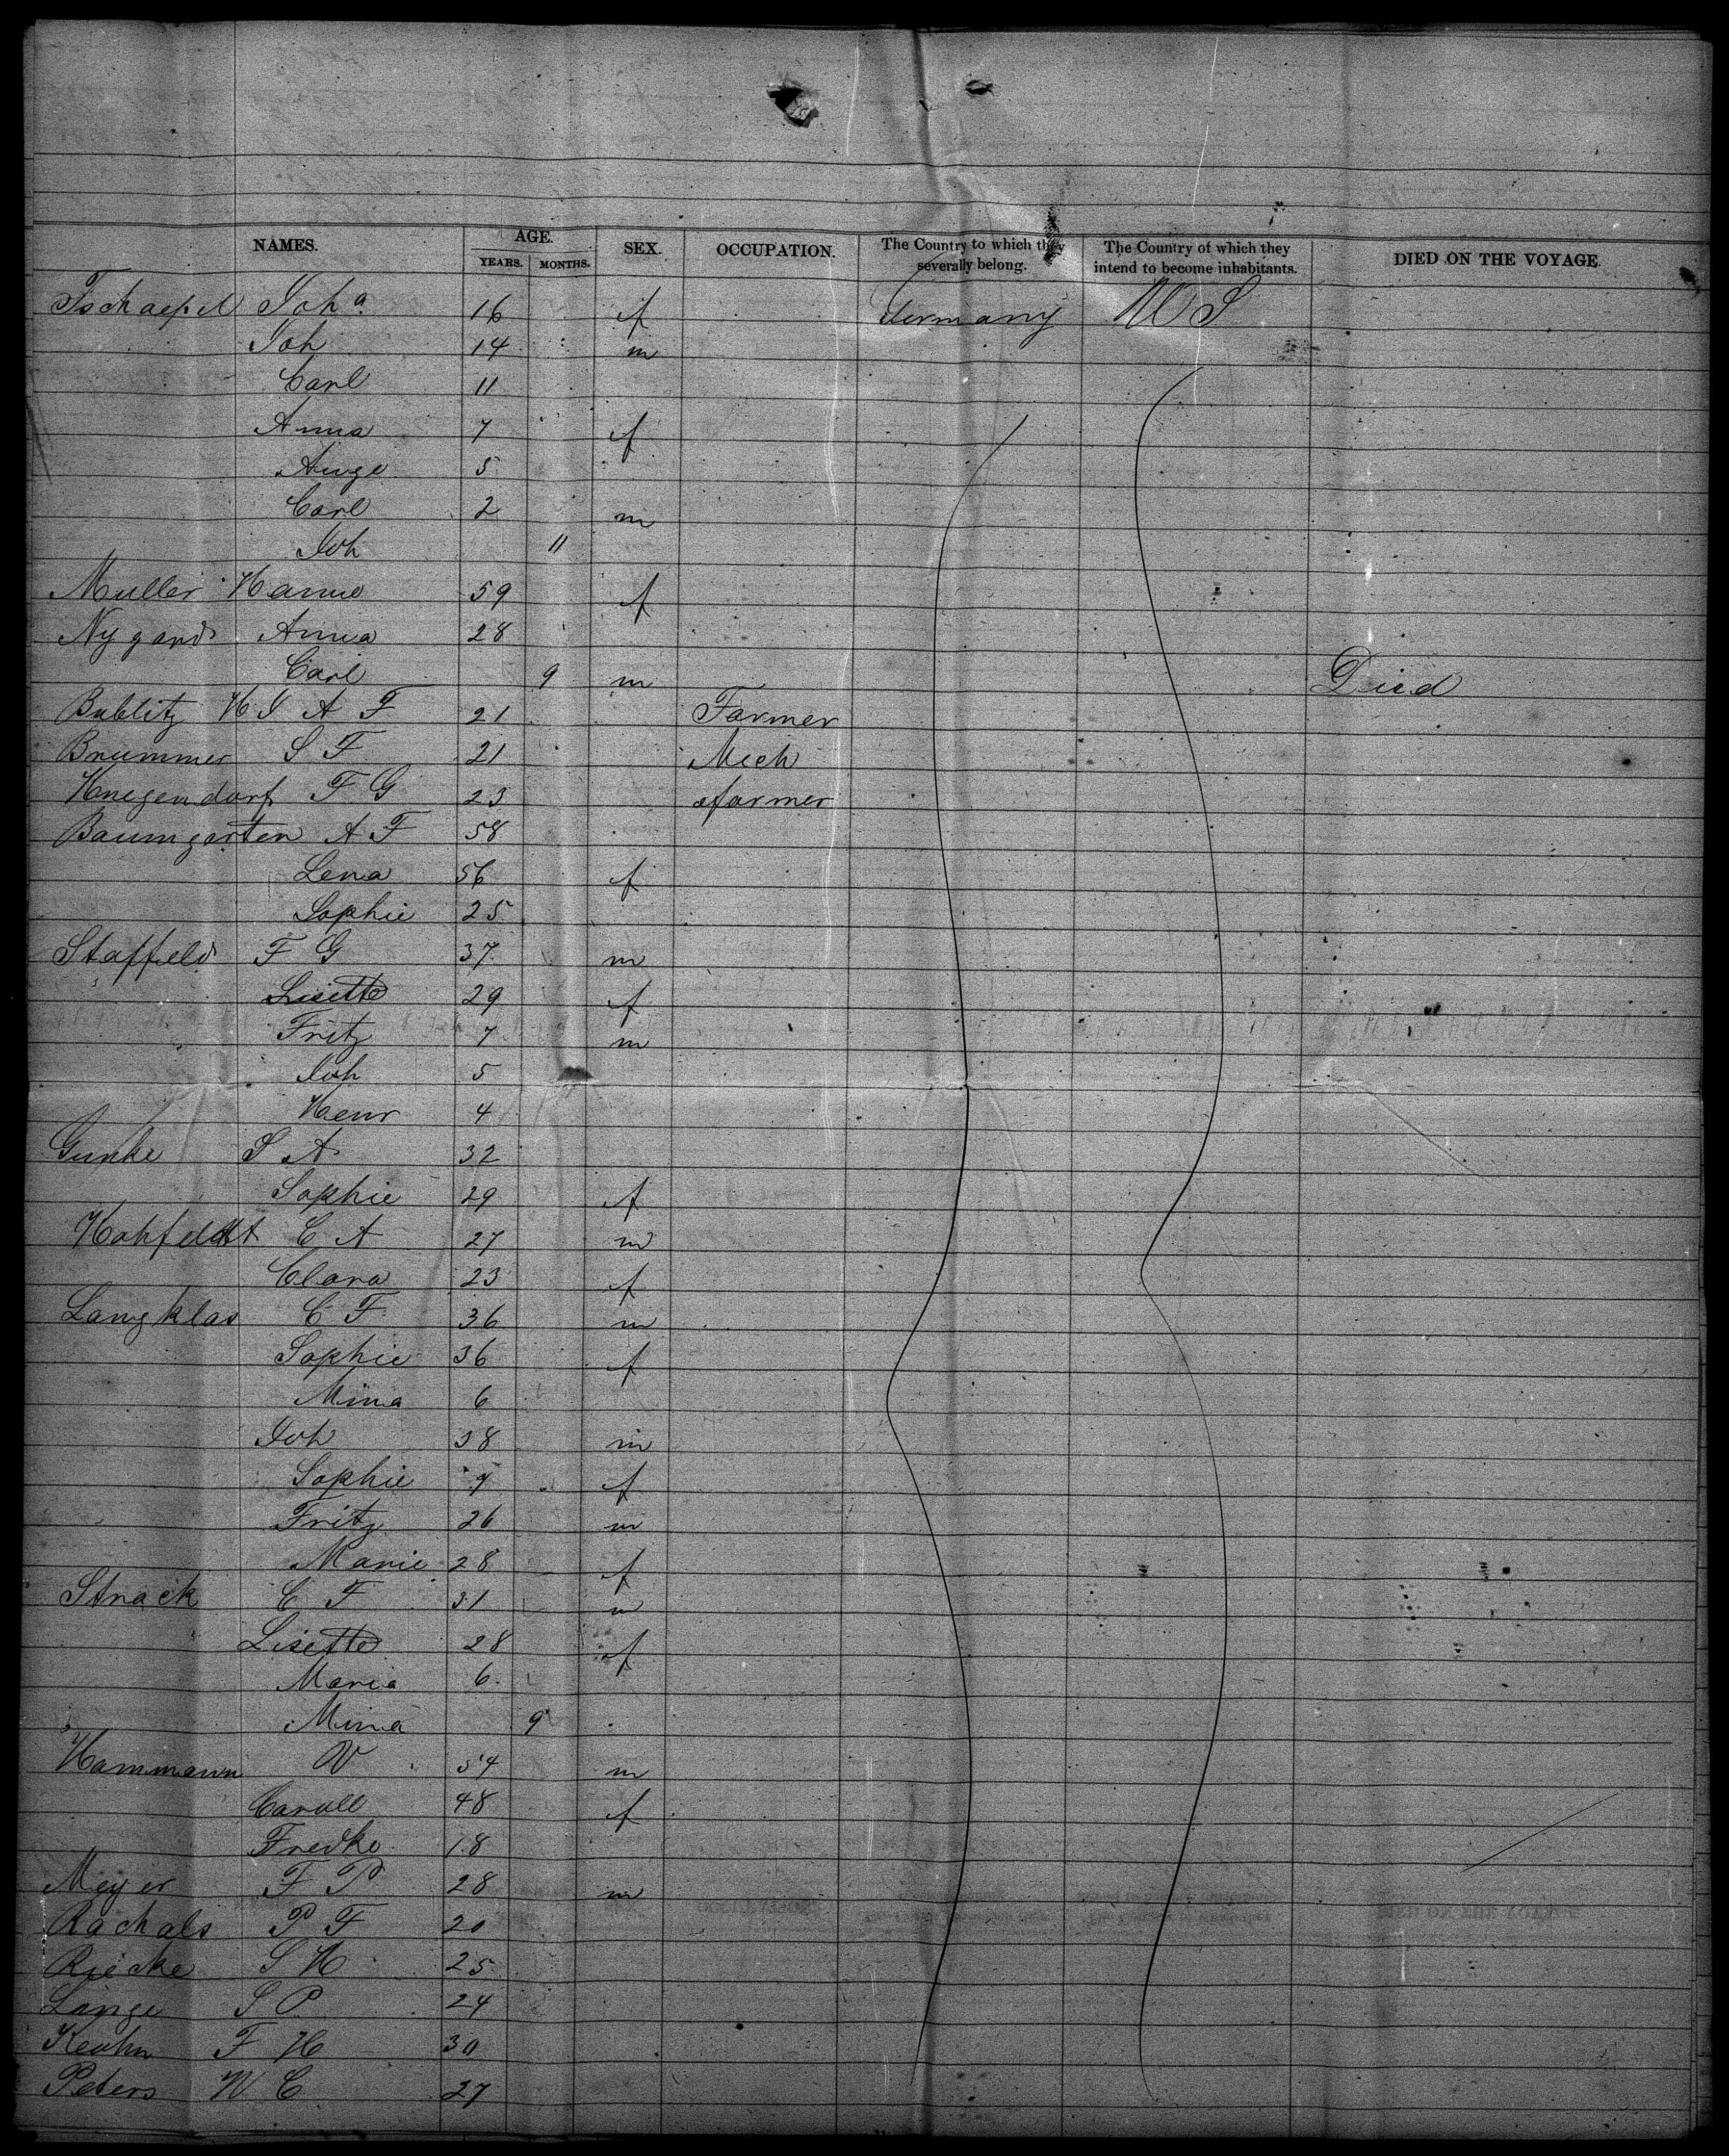 NAMES. AGE. SEX. OCCUPATION. The Country to which they severally belong. The Country of which they intend to become inhabitants. DIED ON THE VOYAGE.
YEARS. MONTHS.
Tschaepel Joh a 16 f Germany U S
Joh 14 m
Carl 11
Anna 7 f
Auge 5
Carl 2 m
Joh 11
Muller Hanne 59 f
Nygard Anna 28
Carl 9 m Died
Bublitz H J A F 21 Farmer
Brummer S F 21 Mech
Knegendorf F G 23 farmer
Baumgarten A F 58
Lena 56 f
Sophie 25
Staffeld F G 37 m
Lisette 29 f
Fritz 7 m
Joh 5
Henr 4
Gunke S A 32
Sophie 29 f
Hohfeldt C A 27 m
Clara 23 f
Langklas C F 36 m
Sophie 36 f
Mina 6
Joh 38 m
Sophie 7 f
Fritz 26 m
Marie 28 f
Strack C F 31 m
Lisette 28 f
Maria 6
Mina 9
Hammann W 54 m
Caroll 48 f
Fredke 18
Meyer F P 28 m
Rachals P F 20
Riecke S H 25
Lange S P 24
Keohn F H 30
Peters W C 27